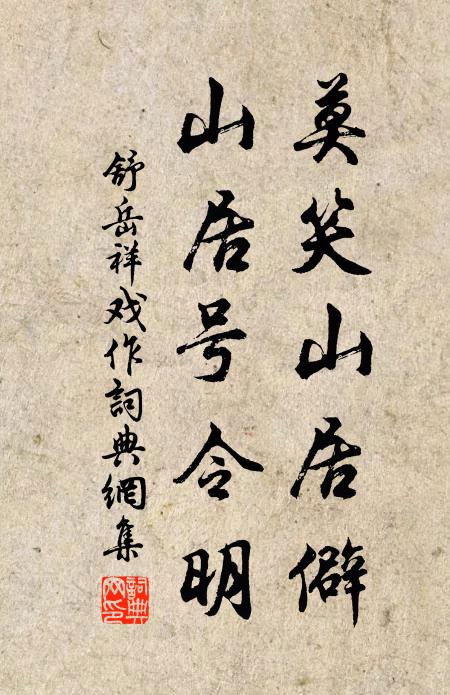 莫笑山居僻
山居号令明
舒岳祥戏作詞典網集
詞典網印